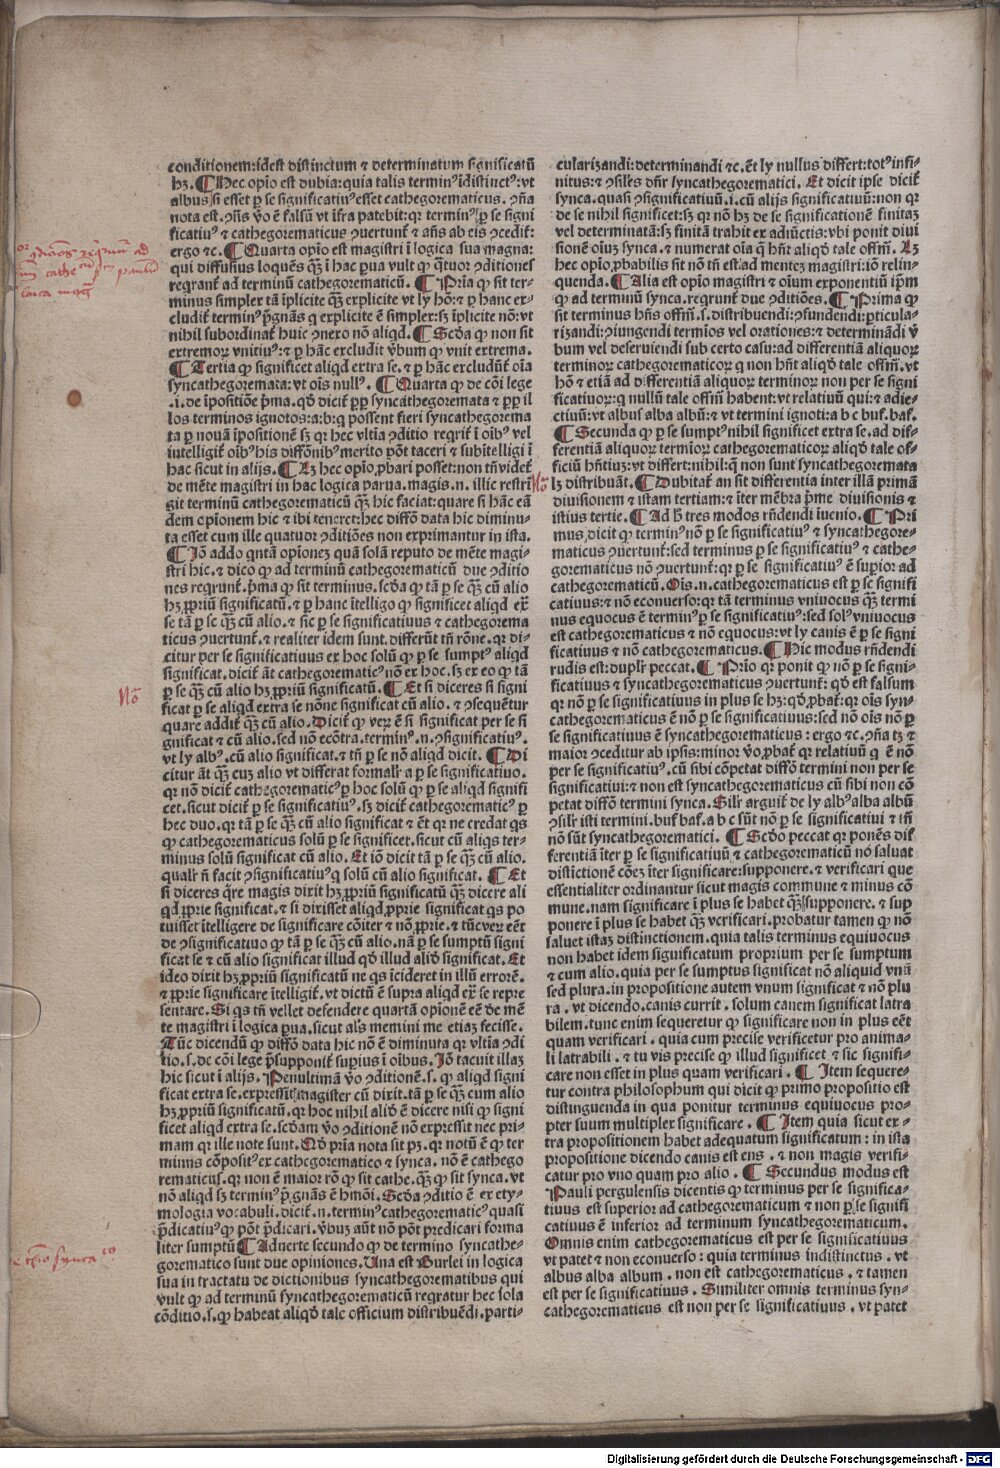 conditionem: idest distinctum ⁊ determinatum significatū
hꝫ. ¶ Hec opīo est dubia: quia talis terminꝰ īdistinctꝰ: vt
albus si esset ꝑ se significatiuꝰ esset cathegorematicus. ꝯn̄a
nota est. ꝯn̄s v̄o ē falsū vt īfra patebit: qr terminꝰ ꝑ se signi
ficatiuꝰ ⁊ cathegorematicus ꝯuertunt̄ ⁊ an̄s ab eis ꝯcedit̄:
ergo ⁊c. ¶ Quarta opīo est magistri ī logica sua magna:
qui diffusius loquēs qꝫ̄ ī hac parua vult ꝙ q̄tuor ꝯditiones
reqrant̄ ad terminū cathegorematicū. ¶ Prīa ꝙ sit ter-
minus simplex tā īplicite qꝫ̄ explicite vt ly hō: ⁊ ꝑ hanc ex-
cludit̄ terminꝰ p̄gnās q explicite ē simplex: sꝫ īplicite nō: vt
nihil subordinat̄ huic ꝯnexo nō aliqd. ¶ Scd̄a ꝙ non sit
extremorꝝ vnitiuꝰ: ⁊ ꝑ hāc excludit v̄bum ꝙ vnit extrema.
¶ Tertia ꝙ significet aliqd extra se. ⁊ ꝑ hāc excludūt̄ oīa
syncathegoremata: vt oīs nullꝰ. ¶ Quarta ꝙ de cōi lege
.i. de īpositiōe p̄ma. qd̄ dicit̄ ꝓpꝑ syncathegoremata ⁊ ꝓpꝑ il
los terminos ignotos: a: b: q possent fieri syncathegorema
ta ꝑ nouā īpositionē sꝫ qr hec vltīa ꝯditio reqrit̄ ī oībꝰ vel
intelligit̄ oībꝰ his diffōnibꝰ merito pōt taceri ⁊ subītelligi ī
hac sicut in alijs. ¶ Aꝫ hec opīo ꝓbari posset: non tn̄ videt̄
de mēte magistri in hac logica parua. magis .n. illic restrī
git terminū cathegorematicū qꝫ̄ hic faciat: quare si hāc eā
dem opīonem hic ⁊ ibi teneret: hec diffō data hic diminu-
ta esset cum ille quatuor ꝯditiōes non exprimantur in ista.
¶ Iō addo qntā opīoneꝫ quā solā reputo de mēte magi-
stri hic. ⁊ dico ꝙ ad terminū cathegorematicū due ꝯditio
nes reqrunt̄. p̄ma ꝙ sit terminus. scd̄a ꝙ tā ꝑ se qꝫ̄ cū alio
hꝫ ꝓpriū significatū. ⁊ ꝑ hanc ītelligo ꝙ significet aliqd ex̄
se tā ꝑ se qꝫ̄ cū alio. ⁊ sic ꝑ se significatiuus ⁊ cathegorema
ticus ꝯuertunt̄. ⁊ realiter idem sunt. differūt tn̄ rōne. qr di-
citur per se significatiuus ex hoc solū ꝙ ꝑ se sumptꝰ aliqd
significat. dicit̄ āt cathegorematicꝰ nō ex hoc. sꝫ ex eo ꝙ tā
ꝑ se qꝫ̄ cū alio hꝫ ꝓpriū significatū. ¶ Et si diceres si signi
ficat ꝑ se aliqd extra se nōne significat cū alio. ⁊ ꝯsequētur
quare addit̄ qꝫ̄ cū alio. Dicit̄ ꝙ veꝝ ē si significat per se si
gnificat ⁊ cū alio. sed nō ecōtra. terminꝰ .n. ꝯsignificatiuꝰ.
vt ly albꝰ. cū alio significat. ⁊ tn̄ ꝑ se nō aliqd dicit. ¶ Di
citur āt qꝫ̄ cuꝫ alio vt differat formalr̄ a ꝑ se significatiuo.
qr nō dicit̄ cathegorematicꝰ ꝑ hoc solū ꝙ ꝑ se aliqd signifi
cet. sicut dicit̄ ꝑ se significatiuꝰ. sꝫ dicit̄ cathegorematicꝰ ꝑ
hec duo. qr tā ꝑ se qꝫ̄ cū alio significat ⁊ ēt qr ne credat qs
ꝙ cathegorematicus solū ꝑ se significet. sicut cū aliqs ter-
minus solū significat cū alio. Et iō dicit tā ꝑ se qꝫ̄ cū alio.
qualr̄ n̄ facit ꝯsignificatiuꝰ q solū cū alio significat. ¶ Et
si diceres q̄re magis dixit hꝫ ꝓpriū significatū qꝫ̄ dicere ali
qd ꝓprie significat. ⁊ si dixisset aliqd ꝓprie significat qs po
tuisset ītelligere de significare cōiter ⁊ nō ꝓprie. ⁊ tūc veꝝ eēt
de ꝯsignificatiuo ꝙ tā ꝑ se qꝫ̄ cū alio. nā ꝑ se sumptū signi
ficat se ⁊ cū alio significat illud qd̄ illud aliud significat. Et
ideo dixit hꝫ ꝓpriū significatū ne qs īcideret in illū errorē.
⁊ ꝓprie significare ītelligit̄. vt dictū ē supra aliqd ex̄ se repre
sentare. Si qs tn̄ vellet defendere quartā opīonē eē de mē
te magistri ī logica ꝑua. sicut als̄ memini me etiaꝫ fecisse.
Tūc dicendū ꝙ diffō data hic nō ē diminuta qr vltīa ꝯdi
tio .s. de cōi lege p̄supponit̄ supīus ī oībus. Iō tacuit illaꝫ
hic sicut ī alijs. Penultimā v̄o ꝯditionē .s. ꝙ aliqd signi
ficat extra se. expressit magister cū dixit. tā ꝑ se qꝫ̄ cum alio
hꝫ ꝓpriū significatū. qr hoc nihil alid̄ ē dicere nisi ꝙ signi
ficet aliqd extra se. scd̄am v̄o ꝯditionē nō expressit nec pri-
mam qr ille note sunt. Qd̄ prīa nota sit pꝫ. qr notū ē ꝙ ter
minus cōpositꝰ ex cathegorematico ⁊ synca. nō ē cathego
rematicus. qr non ē maior rō ꝙ sit cathe. qꝫ̄ ꝙ sit synca. vt
nō aliqd sꝫ terminꝰ p̄gnās ē hmōi. Scd̄a ꝯditio ē ex ety-
mologia vocabuli. dicit̄ .n. terminꝰ cathegorematicꝰ quasi
p̄dicatiuꝰ ꝙ pōt p̄dicari. v̄buꝫ aūt nō pōt predicari forma
liter sumptū ¶ Aduerte secundo ꝙ de termino syncathe-
gorematico sunt due opiniones. Una est Burlei in logica
sua in tractatu de dictionibus syncathegorematibus qui
vult ꝙ ad terminū syncathegorematicū reqratur hec sola
cōditio .s. ꝙ habeat aliqd̄ tale officium distribuēdi. parti-
cularizandi: determinandi ⁊c. ēt ly nullus differt: totꝰ infi-
nitus: ⁊ ꝯsiles dn̄r syncathegorematici. Et dicit̄ ipse dicit̄
synca. quasi ꝯsignificatiuū .i. cū alijs significatiuū: non qr
de se nihil significet: sꝫ qr nō hꝫ de se significationē finitaꝫ
vel determinatā: sꝫ finitā trahit ex adiūctis: vbi ponit diui
sionē oīuꝫ synca. ⁊ numerat oīa q hn̄t aliqd̄ tale offīm. Aꝫ
hec opīo ꝓbabilis sit nō tn̄ est ad menteꝫ magistri: iō relin-
quenda. ¶ Alia est opīo magistri ⁊ oīum exponentiū ip̄m
ꝙ ad terminū synca. reqrunt̄ due ꝯditiōes. ¶ Prima ꝙ
sit terminus hn̄s offīm .s. distribuendi: ꝯfundendi: ꝑticula-
rizandi: ꝯiungendi termīos vel orationes: ⁊ determināndi v̄
bum vel deseruiendi sub certo casu: ad differentiā aliquoꝝ
terminoꝝ cathegorematicoꝝ q non hn̄t aliqd̄ tale offīm. vt
hō ⁊ etiā ad differentiā aliquoꝝ terminoꝝ non per se signi
ficatiuoꝝ: q nullū tale offīm habent: vt relatiuū qui: ⁊ adie-
ctiuū: vt albus alba albū: ⁊ vt termini ignoti: a b c buf. baf.
¶ Secunda ꝙ ꝑ se sumptꝰ nihil significet extra se. ad dif-
ferentiā aliquoꝝ termīoꝝ cathegorematicoꝝ aliqd̄ tale of-
ficiū hn̄tiuꝫ: vt differt: nihil: q̄ non sunt syncathegoremata
lꝫ distribuāt. ¶ Dubitat̄ an sit differentia inter illā primā
diuisionem ⁊ istam tertiam: ⁊ īter mēbra p̄me diuisionis ⁊
istius tertie. ¶ Ad h̄ tres modos rn̄dendi īuenio. ¶ Pri
mus dicit ꝙ terminꝰ nō ꝑ se significatiuꝰ ⁊ syncathegore-
maticus ꝯuertunt̄: sed terminus ꝑ se significatiuꝰ ⁊ cathe-
gorematicus nō ꝯuertunt̄: qr ꝑ se significatiuꝰ ē supīor ad
cathegorematicū. Oīs .n. cathegorematicus est ꝑ se signifi
catiuus: ⁊ nō econuerso: qr tā terminus vniuocus qꝫ̄ termi
nus equocus ē terminꝰ ꝑ se significatiuꝰ: sed solꝰ vniuocus
est cathegorematicus ⁊ nō equocus: vt ly canis ē ꝑ se signi
ficatiuus ⁊ nō cathegorematicus. ¶ Hic modus rn̄dendi
rudis est: duplr̄ peccat. ¶ Prīo qr ponit ꝙ nō ꝑ se signi-
ficatiuus ⁊ syncathegorematicus ꝯuertunt̄: qd̄ est falsum
qr nō ꝑ se significatiuus in plus se hꝫ: qd̄ ꝓbat̄: qr oīs syn-
cathegorematicus ē nō ꝑ se significatiuus: sed nō oīs nō ꝑ
se significatiuus ē syncathegorematicus: ergo ⁊c. ꝯn̄a tꝫ ⁊
maior ꝯceditur ab ipsis: minor v̄o ꝓbat̄ qr relatiuū q ē nō
per se significatiuꝰ. cū sibi cōpetat diffō termini non per se
significatiui: ⁊ non est syncathegorematicus cū sibi non cō
petat diffō termini synca. Silr̄ arguit̄ de ly albꝰ alba albū
ꝯsilr̄ isti termini. buf baf. a b c sūt nō ꝑ se significatiui ⁊ tn̄
nō sūt syncathegorematici. ¶ Scd̄o peccat qr ponēs dif
ferentiā īter ꝑ se significatiuū ⁊ cathegorematicū nō saluat
distictionē cōeꝫ iter significare: supponere. ⁊ verificari que
essentialiter ordinantur sicut magis commune ⁊ minus cō
mune. nam significare ī plus se habet qꝫ̄ supponere. ⁊ sup
ponere ī plus se habet qꝫ̄ verificari. probatur tamen ꝙ nō
saluet istaꝫ distinctionem. quia talis terminus equiuocus
non habet idem significatum proprium per se sumptum
⁊ cum alio. quia per se sumptus significat nō aliquid vnū
sed plura. in propositione autem vnum significat ⁊ nō plu
ra. vt dicendo. canis currit. solum canem significat latra
bilem. tunc enim sequeretur ꝙ significare non in plus eēt
quam verificari. quia cum precise verificetur pro anima-
li latrabili. ⁊ tu vis precise ꝙ illud significet ⁊ sic signifi-
care non esset in plus quam verificari. ¶ Item sequere-
tur contra philosophum qui dicit ꝙ primo propositio est
distinguenda in qua ponitur terminus equiuocus pro-
pter suum multiplex significare. ¶ Item quia sicut ex-
tra propositionem habet adequatum significatum: in ista
propositione dicendo canis est ens. ⁊ non magis verifi-
catur pro vno quam pro alio. ¶ Secundus modus est
Pauli pergulensis dicentis ꝙ terminus per se significa-
tiuus est superior ad cathegorematicum ⁊ non ꝑ se signifi
catiuus ē inferior ad terminum syncathegorematicum.
Omnis enim cathegorematicus est per se significatiuus
vt patet ⁊ non econuerso: quia terminus indistinctus. vt
albus alba album. non est cathegorematicus. ⁊ tamen
est per se significatiuus. Similiter omnis terminus syn-
cathegorematicus est non per se significatiuus. vt patet
Nō
Nō
Digitalisierung gefördert durch die Deutsche Forschungsgemeinschaft - DFG